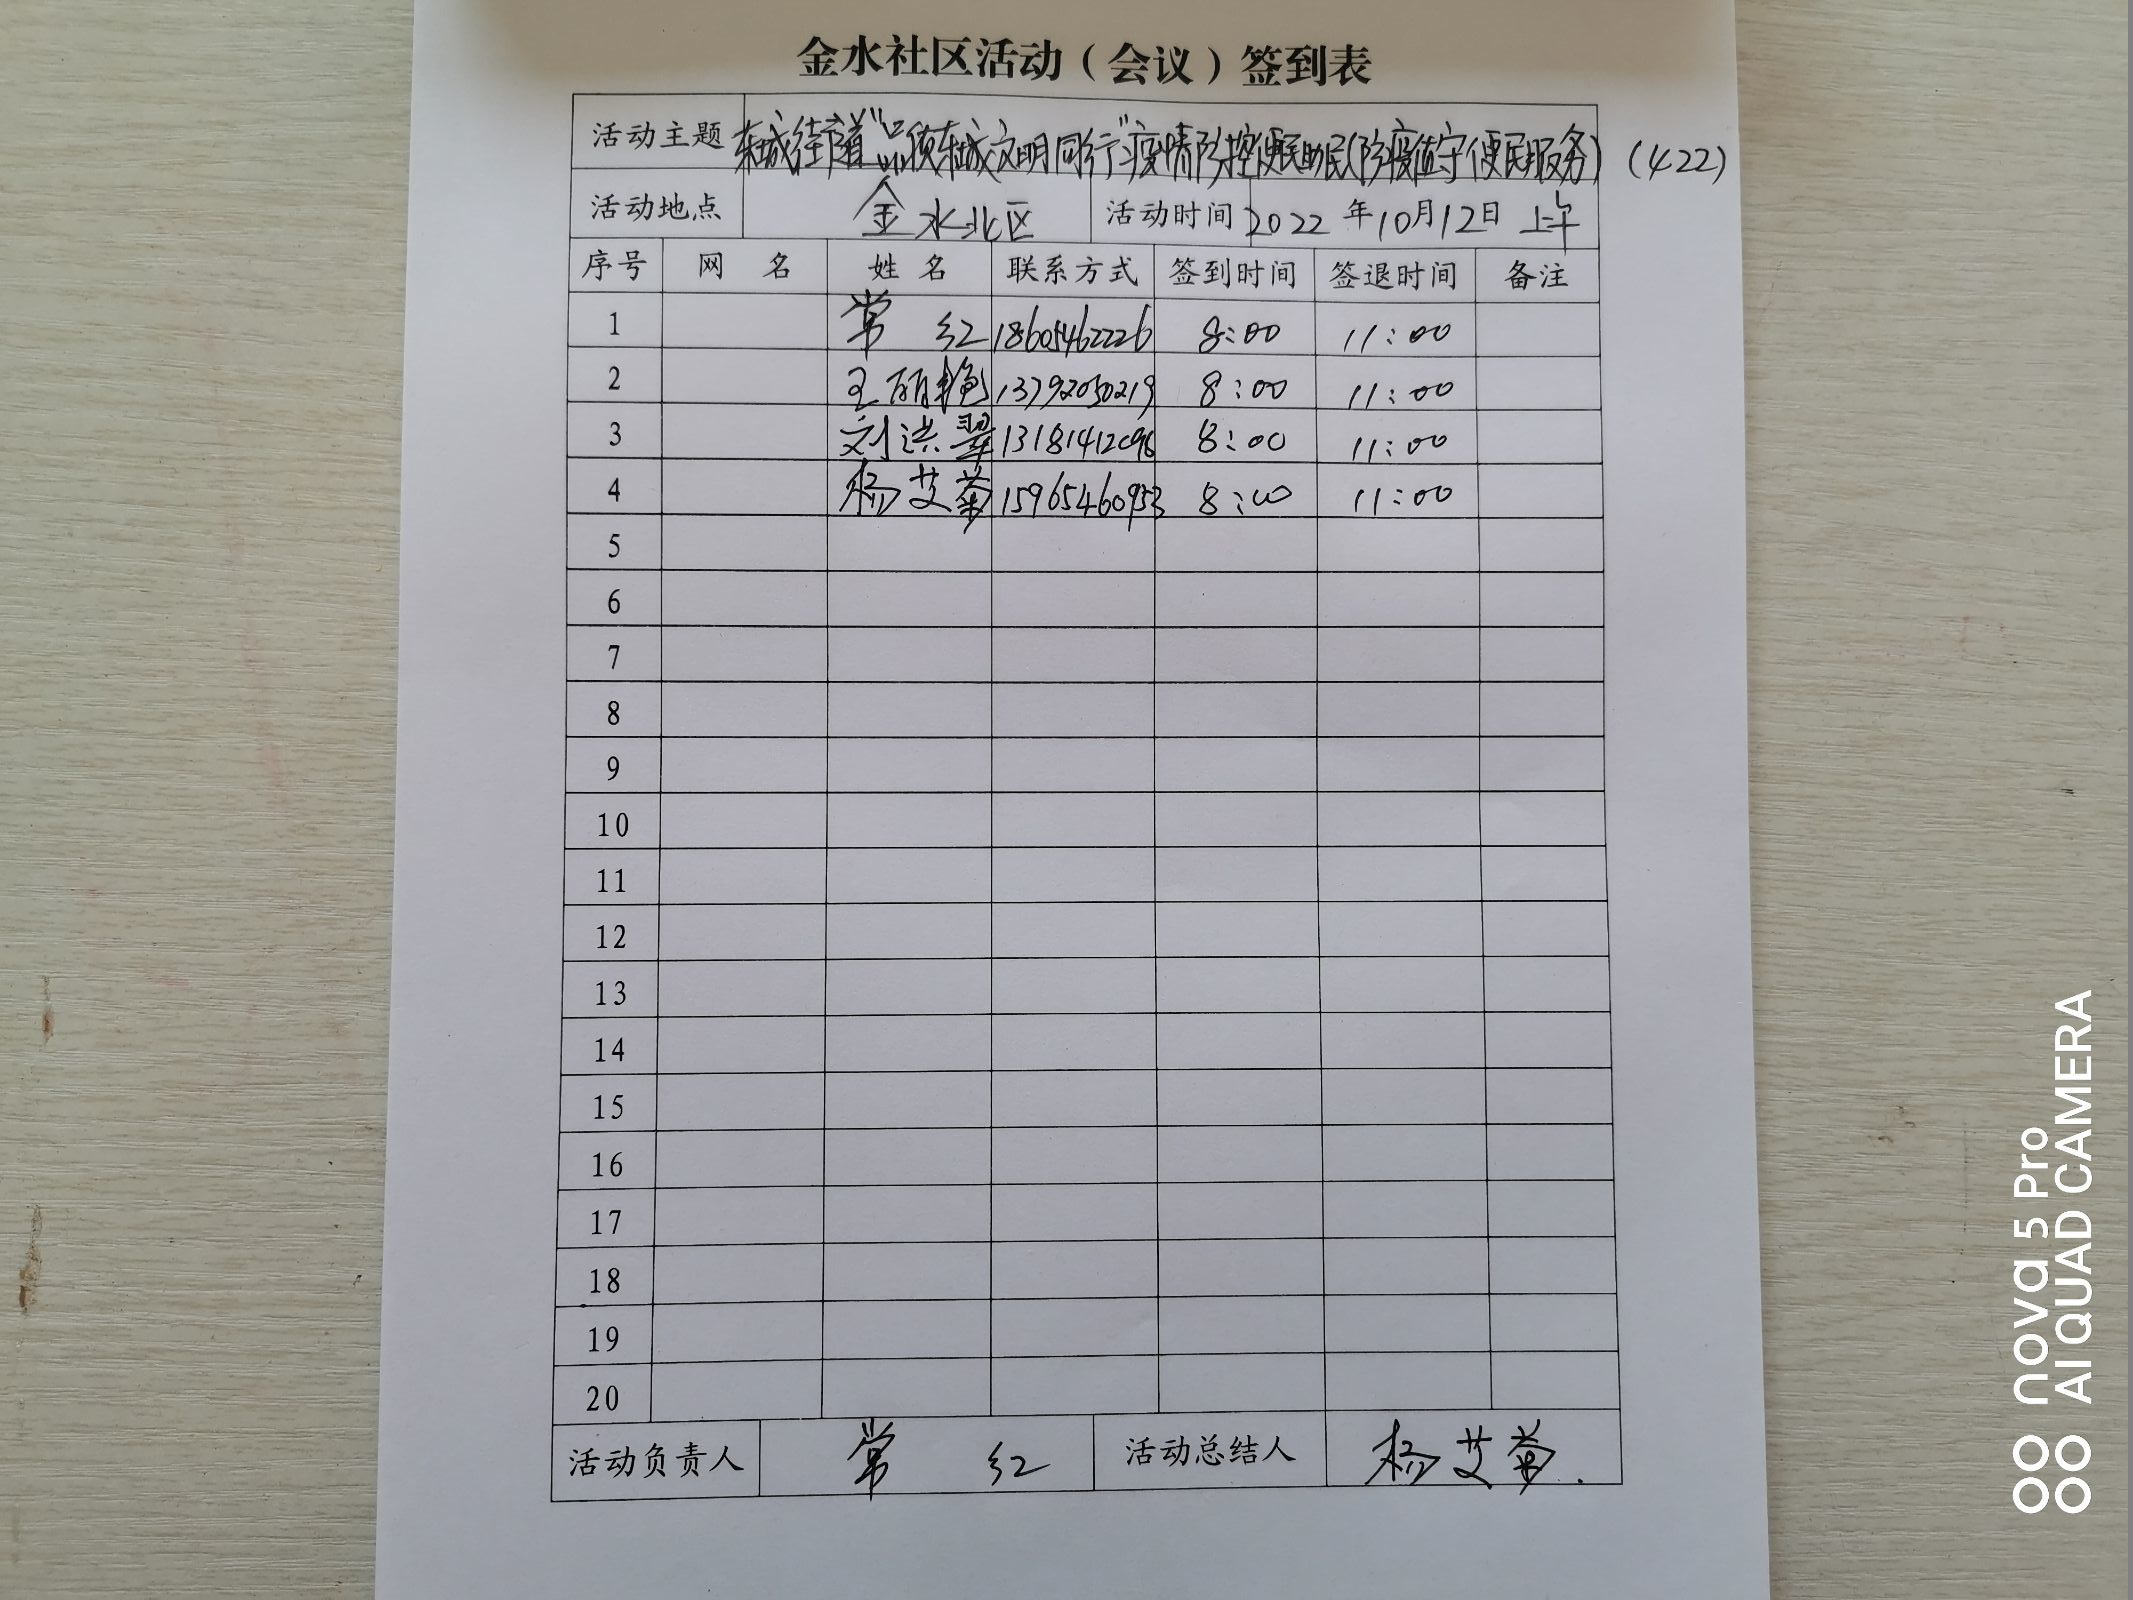 金水社区活动（会议）签到表
活动主题 东城街道"品质东城文明同行"疫情防控便民助民(防疫值守便民服务)(422)
活动地点 金水北区 活动时间 2022年10月12日 上午
序号 网名 姓名 联系方式 签到时间 签退时间 备注
1 常红 18605462226 8:00 11:00
2 王丽艳 13792050219 8:00 11:00
3 刘洪翠 8:00 11:00
4 杨艾菊 15965460953 8:00 11:00
5
6
7
8
9
10
11
12
13
14
15
16
17
18
19
20
活动负责人 常红 活动总结人 杨艾菊.
nova 5 Pro
AI QUAD CAMERA